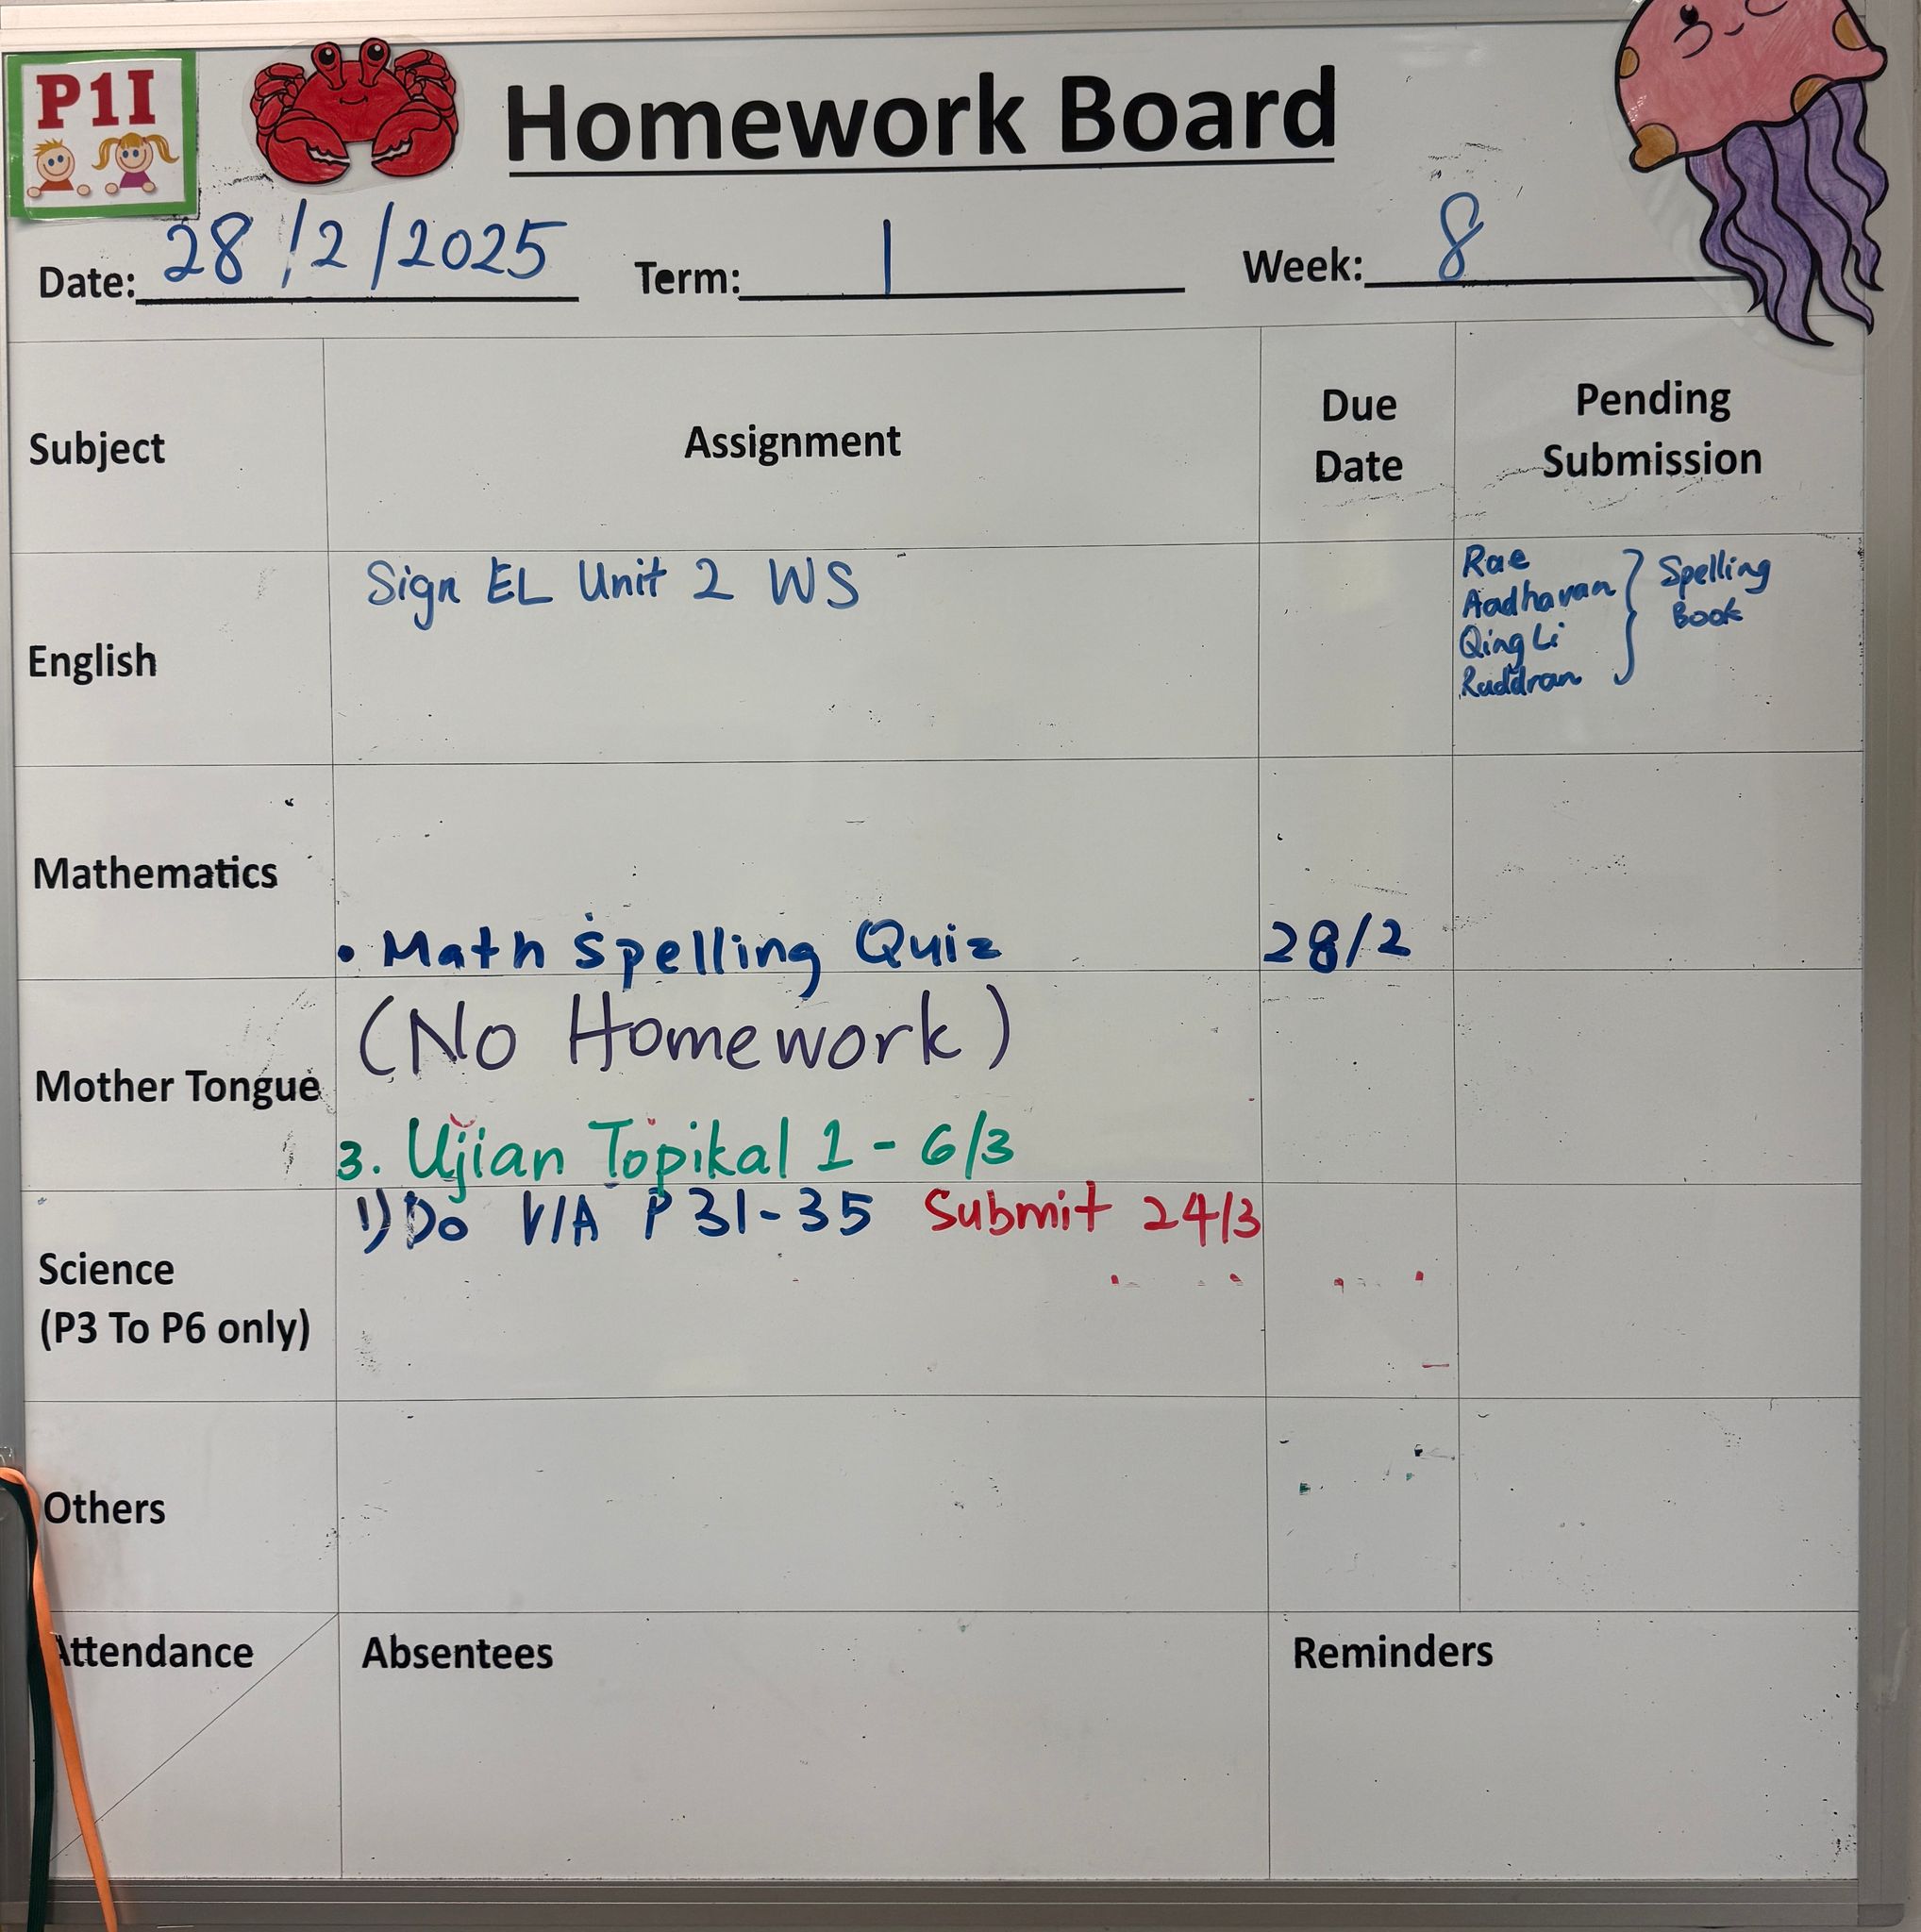 P1I
Homework Board
Date: 28/2/2025 Term: 1 Week: 8
Subject Assignment Due Date Pending Submission
English Sign EL Unit 2 WS
Rae
Aadhavan
Qing Li
Ruddran
Spelling
Book
Mathematics
• Math Spelling Quiz 28/2
Mother Tongue
(No Homework)
3. Ujian Topikal 1 - 6/3
Science
(P3 To P6 only)
1) Do V/A P 31-35 Submit 24/3
Others
Attendance Absentees Reminders